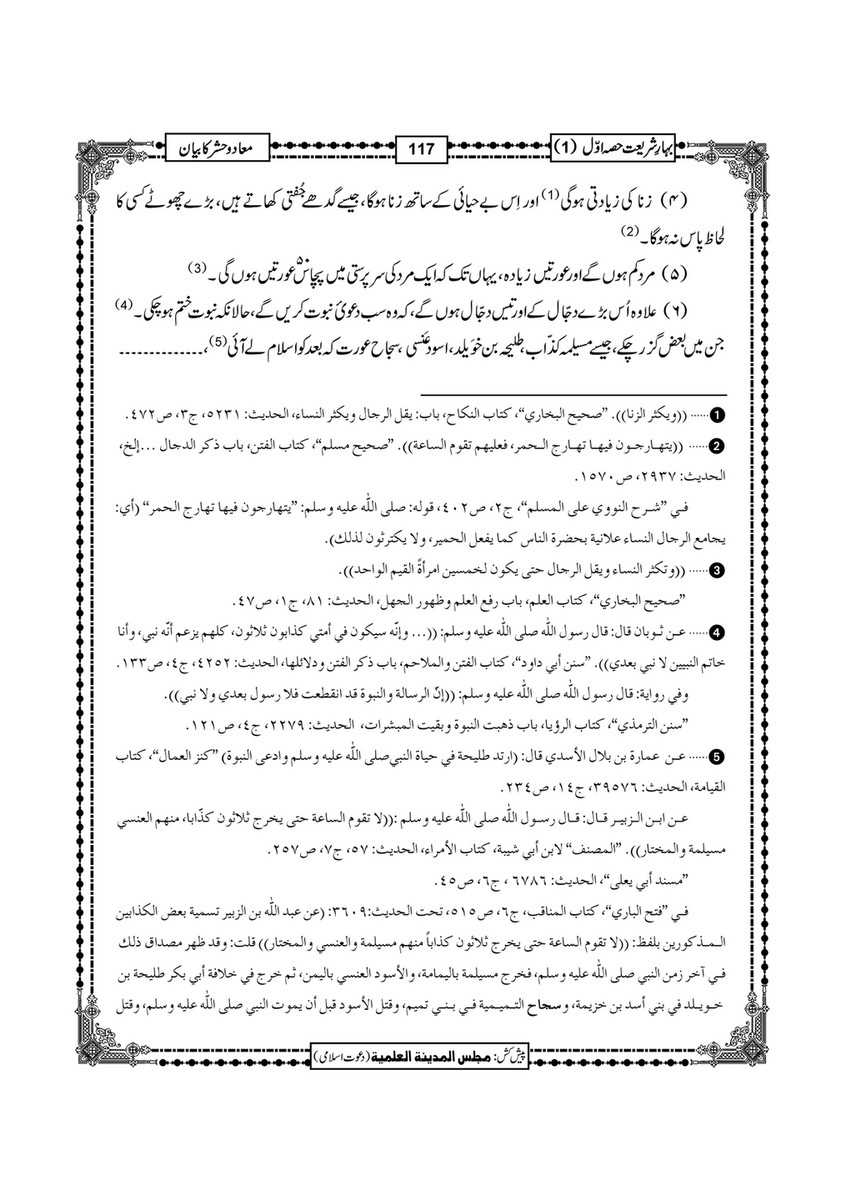 بہارِ شریعت حصہ اوّل (1)
117
معاد و حشر کا بیان
(۴) زنا کی زیادتی ہوگی(1) اور اِس بے حیائی کے ساتھ زنا ہوگا، جیسے گدھے جُفتی کھاتے ہیں، بڑے چھوٹے کسی کا
لحاظ پاس نہ ہوگا۔(2)
(۵) مرد کم ہوں گے اور عورتیں زیادہ، یہاں تک کہ ایک مرد کی سرپرستی میں پچاس ۵۰ عورتیں ہوں گی۔(3)
(۶) علاوہ اُس بڑے دجّال کے اور تیس دجّال ہوں گے، کہ وہ سب دعویٔ نبوت کریں گے، حالانکہ نبوت ختم ہو چکی۔(4)
جن میں بعض گزر چکے، جیسے مسیلمہ کذّاب، طلیحہ بن خوَیلد، اسود عَنسی، سجاح عورت کہ بعد کو اسلام لے آئی(5)،..............
❶...... ((ويكثر الزنا)). ”صحيح البخاري“، كتاب النكاح، باب: يقل الرجال ويكثر النساء، الحديث: ٥٢٣١، ج٣، ص٤٧٢.
❷...... ((يتهارجون فيها تهارج الحمر، فعليهم تقوم الساعة)). ”صحيح مسلم“، كتاب الفتن، باب ذكر الدجال ...إلخ،
الحديث: ٢٩٣٧، ص١٥٧٠.
في ”شرح النووي على المسلم“، ج٢، ص٤٠٢، قوله: صلى الله عليه وسلم: ”يتهارجون فيها تهارج الحمر“ (أي:
يجامع الرجال النساء علانية بحضرة الناس كما يفعل الحمير، ولا يكترثون لذلك).
❸...... ((وتكثر النساء ويقل الرجال حتى يكون لخمسين امرأةً القيم الواحد)).
”صحيح البخاري“، كتاب العلم، باب رفع العلم وظهور الجهل، الحديث: ٨١، ج١، ص٤٧.
❹...... عن ثوبان قال: قال رسول الله صلى الله عليه وسلم: ((... وإنّه سيكون في أمتي كذابون ثلاثون، كلهم يزعم أنّه نبي، وأنا
خاتم النبيين لا نبي بعدي)). ”سنن أبي داود“، كتاب الفتن والملاحم، باب ذكر الفتن ودلائلها، الحديث: ٤٢٥٢، ج٤، ص١٣٣.
وفي رواية: قال رسول الله صلى الله عليه وسلم: ((إنّ الرسالة والنبوة قد انقطعت فلا رسول بعدي ولا نبي)).
”سنن الترمذي“، كتاب الرؤيا، باب ذهبت النبوة وبقيت المبشرات، الحديث: ٢٢٧٩، ج٤، ص١٢١.
❺...... عن عمارة بن بلال الأسدي قال: (ارتد طليحة في حياة النبي صلى الله عليه وسلم وادعى النبوة) ”كنز العمال“، كتاب
القيامة، الحديث: ٣٩٥٧٦، ج١٤، ص٢٣٤.
عن ابن الزبير قال: قال رسول الله صلى الله عليه وسلم :((لا تقوم الساعة حتى يخرج ثلاثون كذّابا، منهم العنسي
مسيلمة والمختار)). ”المصنف“ لابن أبي شيبة، كتاب الأمراء، الحديث: ٥٧، ج٧، ص٢٥٧.
”مسند أبي يعلى“، الحديث: ٦٧٨٦ ، ج٦، ص٤٥.
في ”فتح الباري“، كتاب المناقب، ج٦، ص٥١٥، تحت الحديث:٣٦٠٩: (عن عبد الله بن الزبير تسمية بعض الكذابين
المذكورين بلفظ: ((لا تقوم الساعة حتى يخرج ثلاثون كذاباً منهم مسيلمة والعنسي والمختار)) قلت: وقد ظهر مصداق ذلك
في آخر زمن النبي صلى الله عليه وسلم، فخرج مسيلمة باليمامة، والأسود العنسي باليمن، ثم خرج في خلافة أبي بكر طليحة بن
خويلد في بني أسد بن خزيمة، وسجاح التميمية في بني تميم، وقتل الأسود قبل أن يموت النبي صلى الله عليه وسلم، وقتل
پیش کش: مجلس المدینۃ العلمیۃ (دعوت اسلامی)